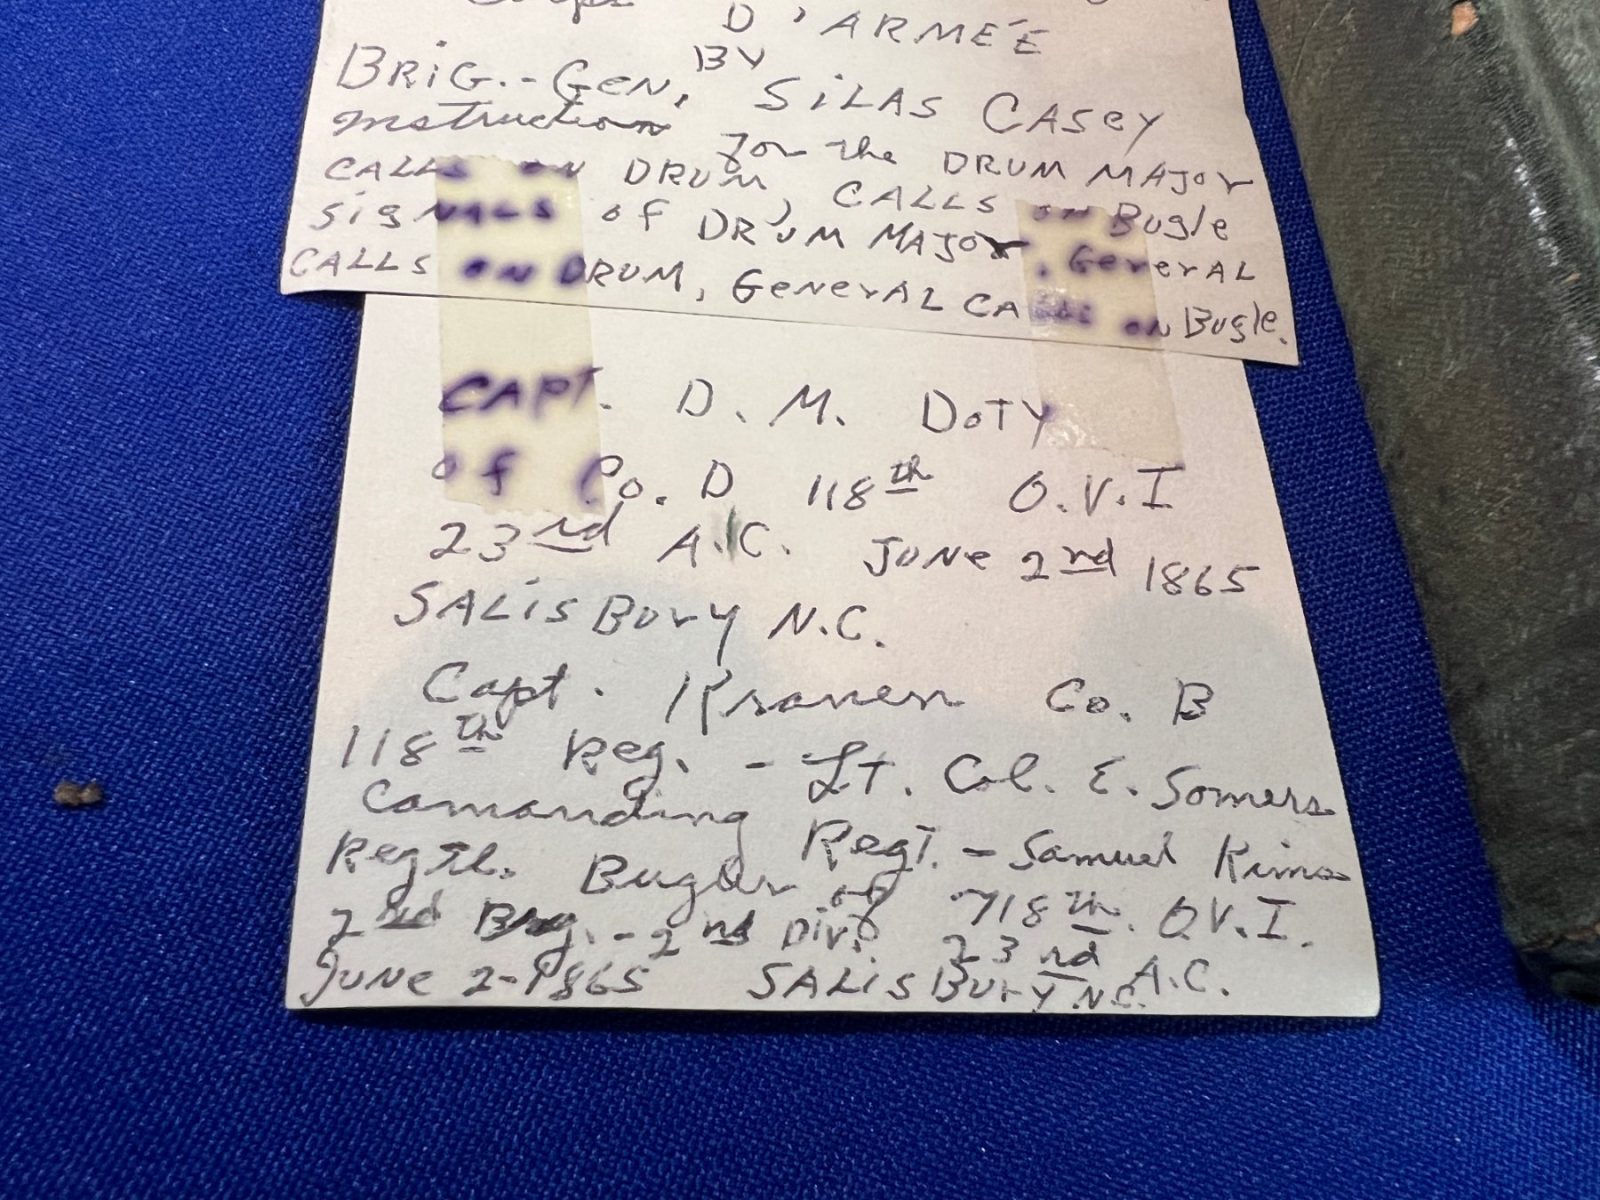 Corps D'ARMÉE
BY
BRIG.-GEN, SILAS CASEY
Instruction for the DRUM MAJOR
CALLS ON DRUM, CALLS ON Bugle
SIGNALS of DRUM MAJOR, General
CALLS ON DRUM, GENERAL CALLS ON Bugle.
CAPT. D. M. DOTY
of Co. D 118th O.V.I
23rd A.C. JUNE 2nd 1865
SALISBURY N.C.
Capt. Co. B
118th Reg. - Lt. Col. E. Somers
Comanding Regt. - Samuel
Regtl. Bugler of 118th. O.V.I.
2nd Brg. - 2nd Div. 23rd A.C.
JUNE 2-1865 SALISBURY N.C.